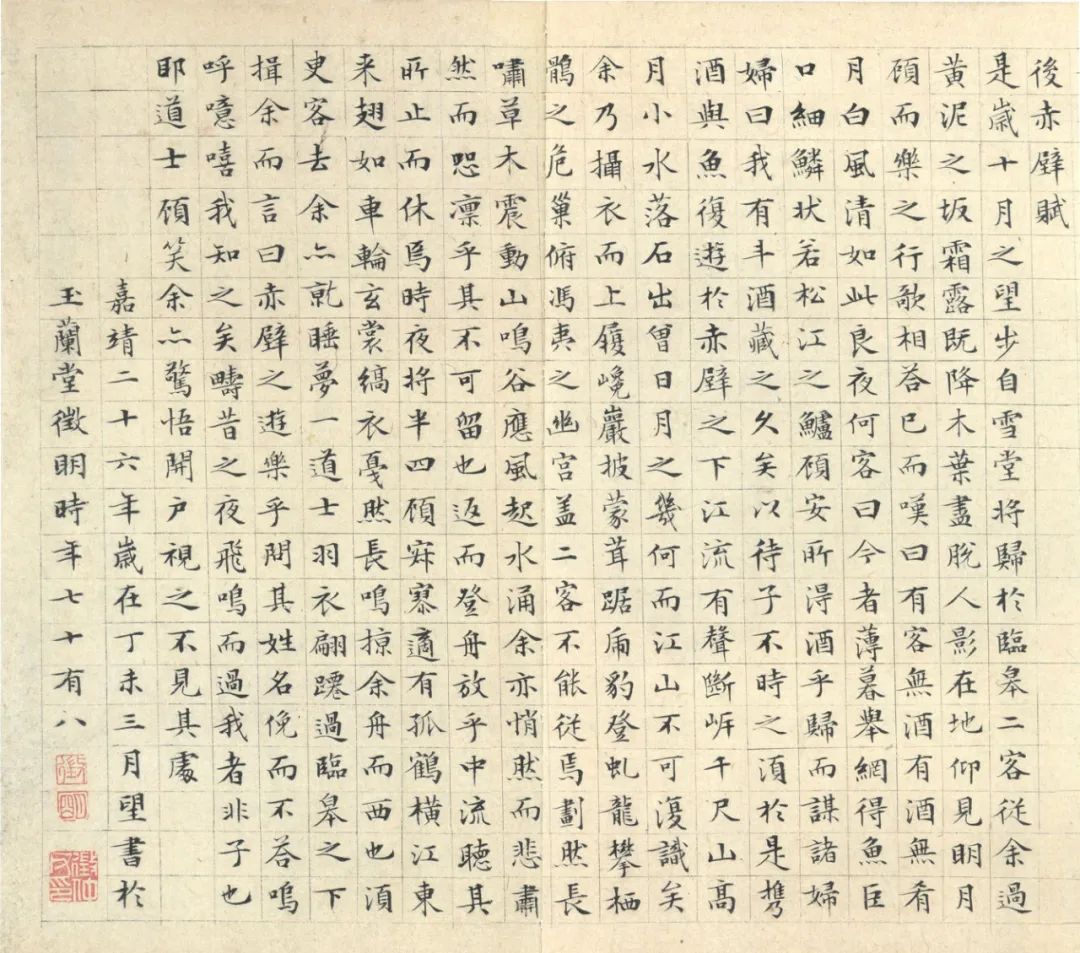 後赤壁賦
是歲十月之望步自雪堂將歸於臨皋二客從余過
黃泥之坂霜露既降木葉盡脫人影在地仰見明月
顧而樂之行歌相答已而嘆曰有客無酒有酒無肴
月白風清如此良夜何客曰今者薄暮舉網得魚巨
口細鱗狀若松江之鱸顧安所得酒乎歸而謀諸婦
婦曰我有斗酒藏之久矣以待子不時之須於是攜
酒與魚復遊於赤壁之下江流有聲斷岸千尺山高
月小水落石出曾日月之幾何而江山不可復識矣
余乃攝衣而上履巉巖披蒙茸踞虎豹登虬龍攀栖
鶻之危巢俯馮夷之幽宮盖二客不能從焉劃然長
嘯草木震動山鳴谷應風起水涌余亦悄然而悲肅
然而恐凛乎其不可留也返而登舟放乎中流聽其
所止而休焉時夜將半四顧寂寥適有孤鶴橫江東
来翅如車輪玄裳縞衣戛然長鳴掠余舟而西也須
臾客去余亦就睡夢一道士羽衣翩躚過臨皋之下
揖余而言曰赤壁之遊樂乎問其姓名俛而不答嗚
呼噫嘻我知之矣疇昔之夜飛鳴而過我者非子也
耶道士顧笑余亦驚悟開戶視之不見其處
嘉靖二十六年歲在丁未三月望書於
玉蘭堂徵明時年七十有八
徵明
徵仲父印